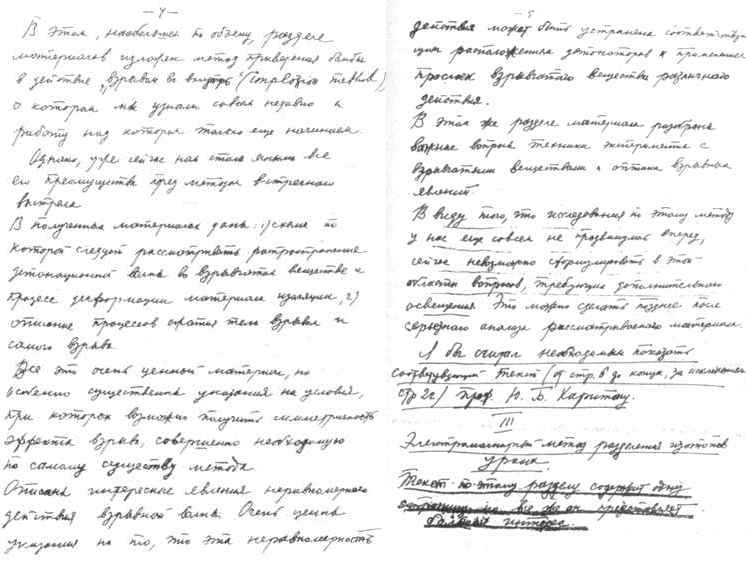 — 4 —
В этом, наибольшем по объему, разделе
материалов изложен метод приведения бомбы
в действие „взрывом во внутрь" (implosion method),
о котором мы узнали совсем недавно и
работу над которым только еще начинаем.
Однако, уже сейчас нам стали ясными все
его преимущества перед методом встречного
выстрела
В полученных материалах даны: 1) схема по
которой следует рассматривать распространение
детонационной волны во взрывчатом веществе и
процесс деформации материала изоляции 2)
описание процессов сжатия тела взрывом и
самого взрыва
Все это очень ценный материал, но
особенно существенны указания на условия,
при которых возможно получить симметричность
эффекта взрыва, совершенно необходимую
по самому существу метода
Описаны интересные явления неравномерного
действия взрывной волны. Очень ценны
указания на то, что эта неравномерность
— 5
действия может быть устранена соответствую
щим расположением детонаторов и применением
прослоек взрывчатого вещества различного
действия.
В этом же разделе материала разобраны
важные вопросы техники эксперимента с
взрывчатыми веществами и оптика взрывных
явлений.
В виду того, что исследования по этому методу
у нас еще совсем не продвинулись вперед,
сейчас невозможно сформулировать в этой
области вопросов, требующих дополнительного
освещения. Это можно сделать позднее после
серьезного анализа рассматриваемого материала.
Я бы считал необходимым показать
соответствующий текст (от стр. 6 до конца, за исключением
стр 22) проф. Ю. Б. Харитону.
III
Электромагнитный метод разделения изотопов
урана.
Текст по этому разделу содержит одну
страницу но все же он представляет
большой интерес